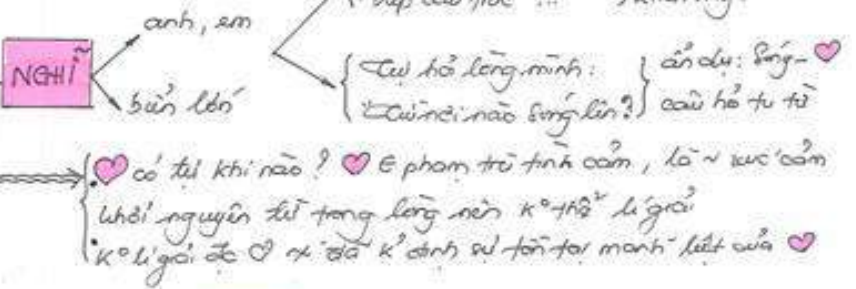 anh, em
NGHĨ
biển lớn
Tự hỏi lòng mình :
"Từ nơi nào sóng lên?
ẩn dụ: Sóng - ♡
câu hỏi tu từ
♡ có từ khi nào? ♡ ∈ phạm trù tình cảm, là ~ xúc cảm
khởi nguyên từ trong lòng nên K° thể lí giải
K° lí giải đc ♡ nx đã k' định sự tồn tại mãnh liệt của ♡